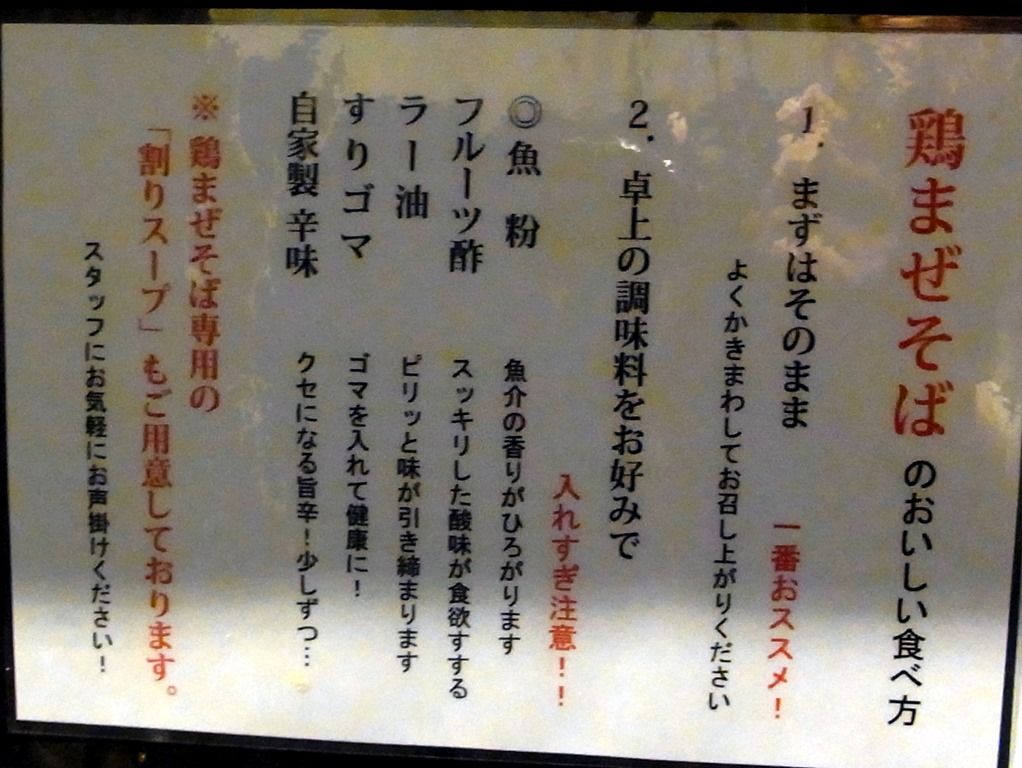 鶏まぜそばのおいしい食べ方
1. まずはそのまま 一番おススメ！
よくかきまわしてお召し上がりください
2. 卓上の調味料をお好みで
入れすぎ注意！！
◎魚 粉 魚介の香りがひろがります
フルーツ酢 スッキリした酸味が食欲すする
ラー油 ピリッと味が引き締まります
すりゴマ ゴマを入れて健康に！
自家製辛味 クセになる旨辛！少しずつ…
※鶏まぜそば専用の
「割りスープ」もご用意しております。
スタッフにお気軽にお声掛けください！